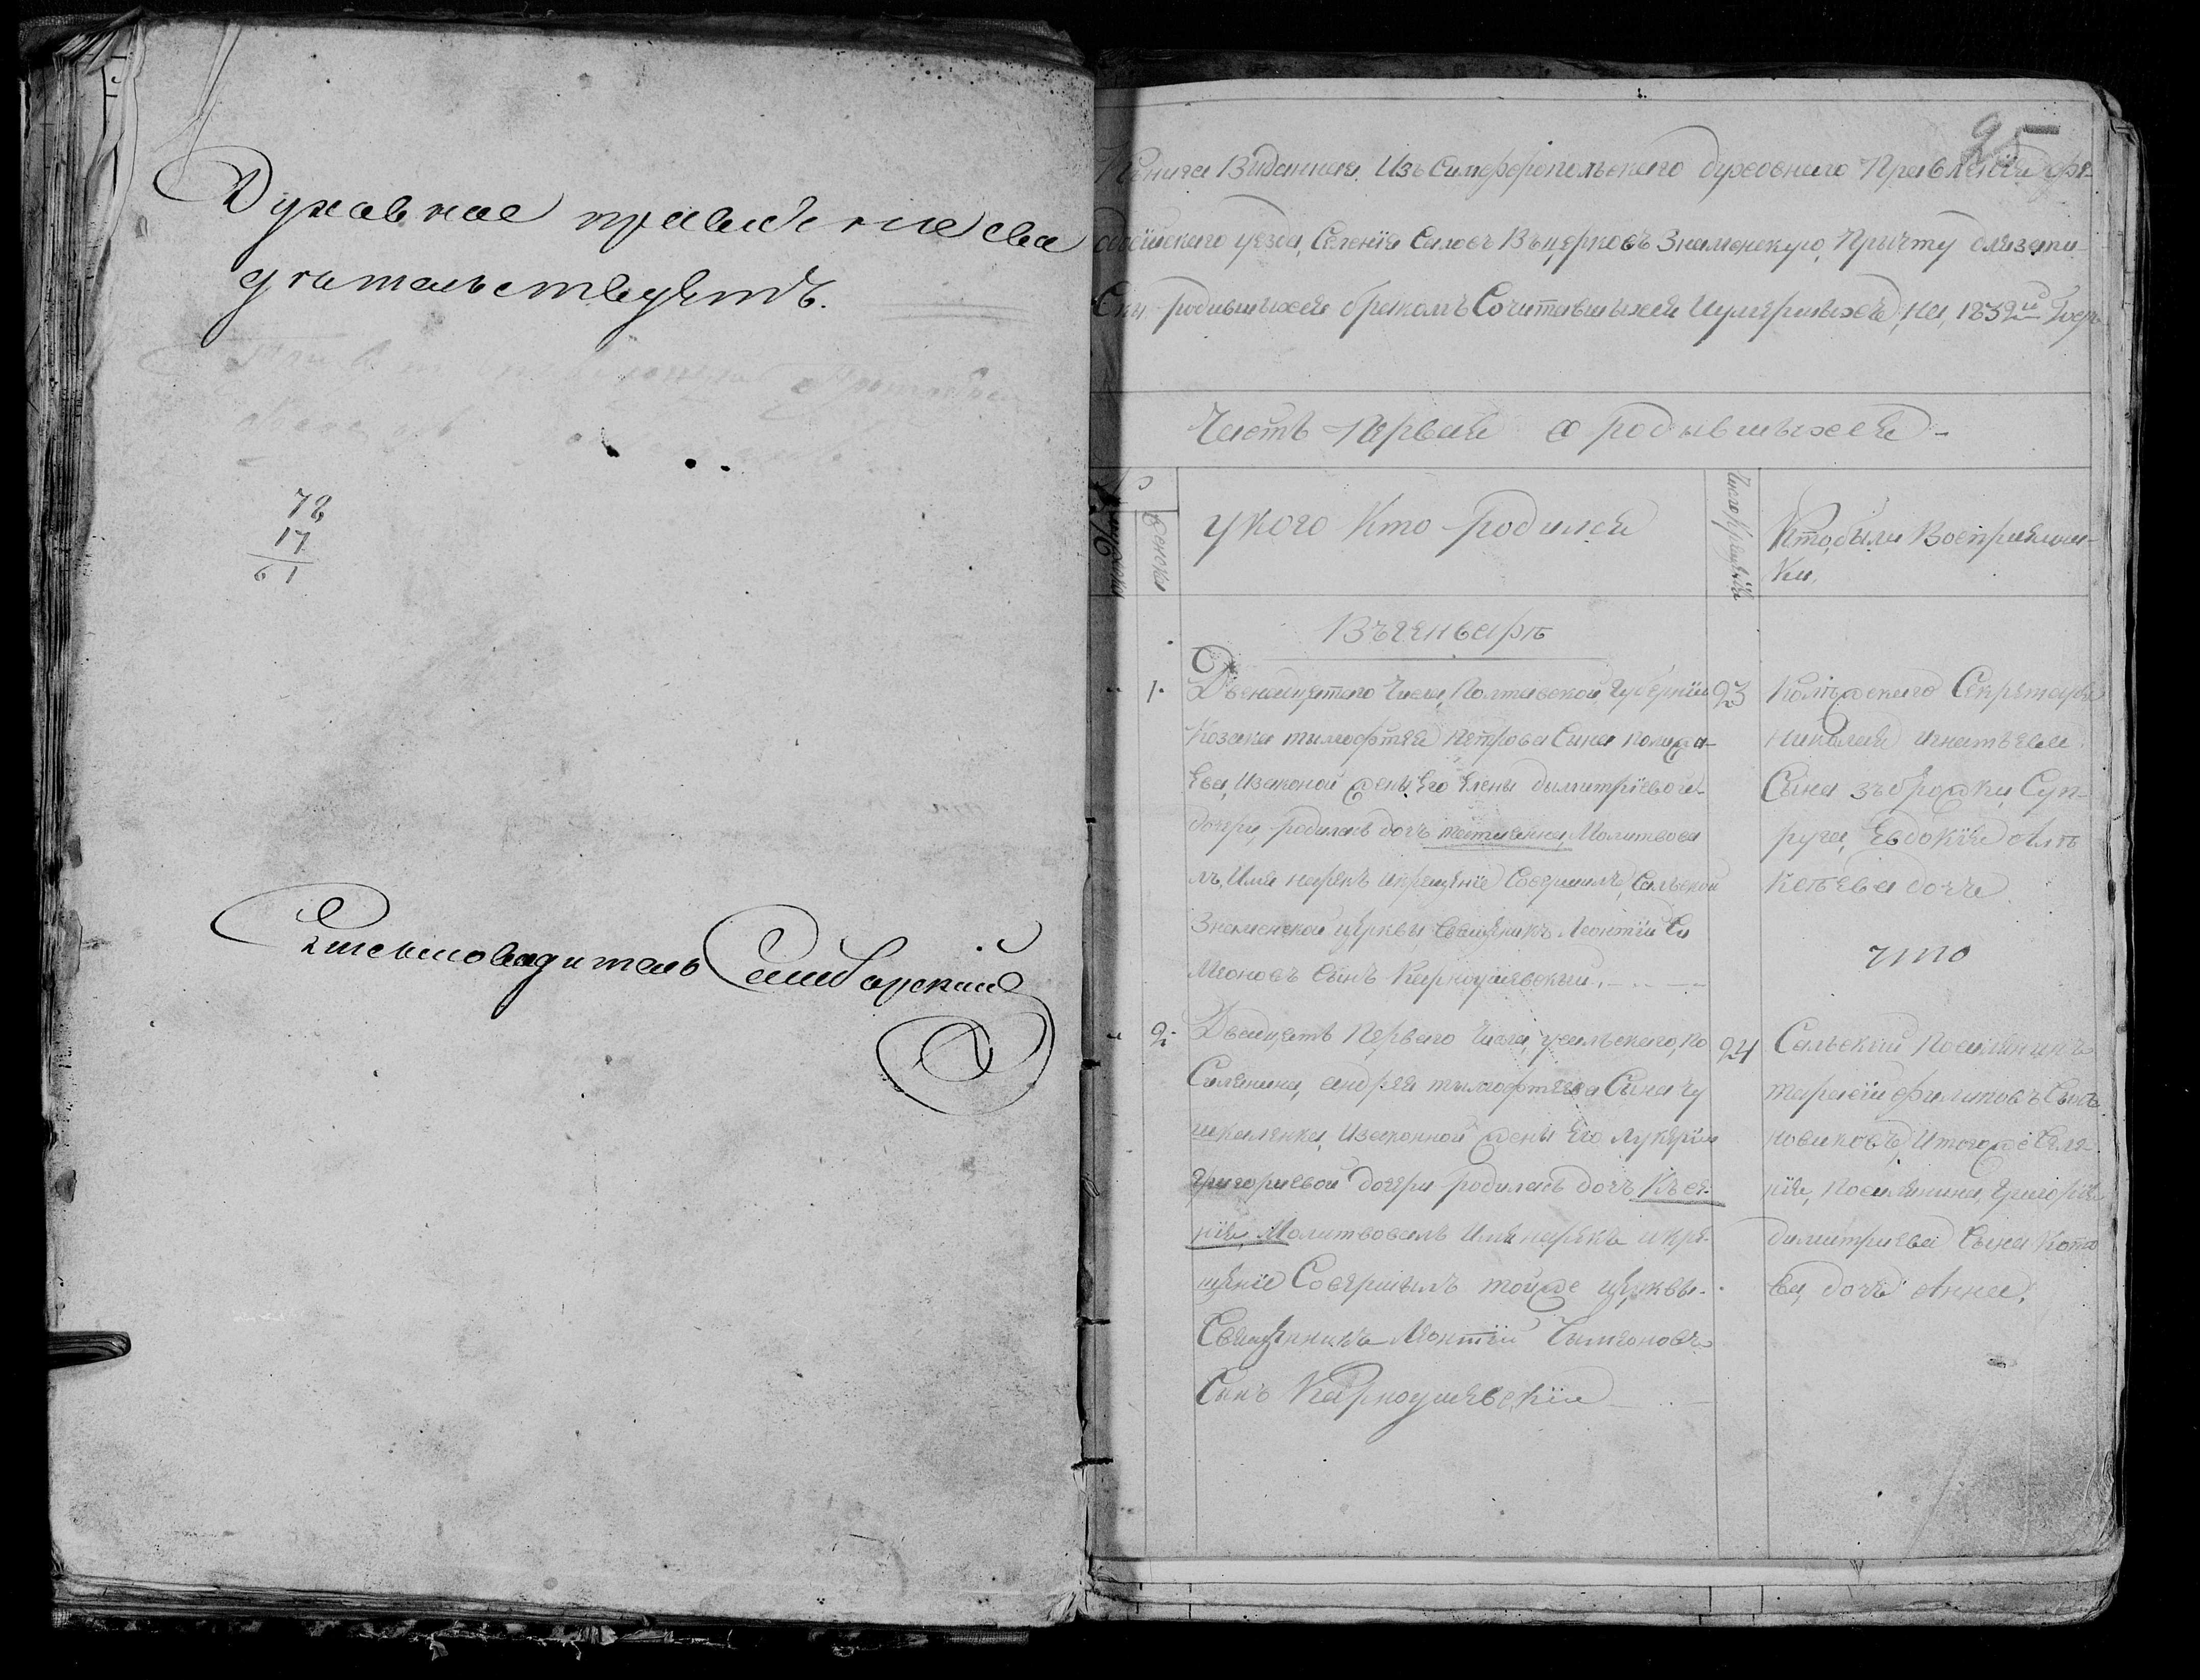 Духовное правление сви
дѣтельствуетъ.
78
17
61
Письмоводитель Самборский
25
Книга Виданная Изъ Симферопольского духовного Правленія Фео
досійского уезда, Селенія Саловъ Въцерковъ Знаменскую, Прычту длязапи
Ски родившыхся бракомъ Сочитавшыхся Иумершыхъ, на 1832й Годъ
Часть Первая о родывшыхся
Женски
укого Кто родился
Число крещенія
Ктобыли Восприемни-
ки,
Въгенварѣ
1. Двенадцетого Числа, Полтавской Губерніи 23
Козака тымофтея Петрова Сина
Ева, Изаконой жены Его Елены дымитріевой
дочери, родилась дочь татианна, Молитвова
лъ, Имя нарекъ икрещеніе Совершилъ, Сальской
Знаменской церквы Священикъ Леонтій Си
меоновъ Сынъ Карноушевскый.
Колѣжского Секретаря
николая игнатьева
Сына зброжки, Суп-
руга, Евдокія Алѣ
ксѣева дочь
что
2. Двадцеть Первого Числа, усальского, По 24
Силянина, андрея тымофтеева Сына Чу
шкаленка, Изаконной жены Его Лукеріи
Григориевой дочери родилась дочь Късе-
нія, Молитвовалъ Имя нарекъ и кре-
щеніе Совершылъ тойже церквы
Священникъ Леонтій Сымеоновъ
Сынъ Карноушевскій
Сальский Поселянинъ
тарасій филиповъ Сынъ
новиковъ, Итогоже Селе-
нія, Поселянина, Григорія
димитриева Сына Кото
ва, дочь Анна.